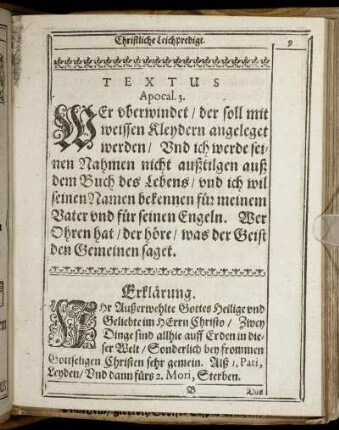 Christliche Leichpredigt.
9
TEXTUS
Apocal. 3.
WEr vberwindet / der soll mit
weissen Kleydern angeleget
werden / Vnd ich werde sei-
nen Nahmen nicht außtilgen auß
dem Buch des Lebens / vnd ich wil
seinen Namen bekennen für meinem
Vater vnd für seinen Engeln. Wer
Ohren hat / der höre / was der Geist
den Gemeinen saget.
Erklärung.
IHr Außerwehlte Gottes Heilige vnd
Geliebte im HErrn Christo / Zwey
Dinge sind allhie auff Erden in die-
ser Welt / Sonderlich bey frommen
Gottseligen Christen sehr gemein. Alß 1. Pati,
Leyden / Vnd dann fürs 2. Mori, Sterben.
B